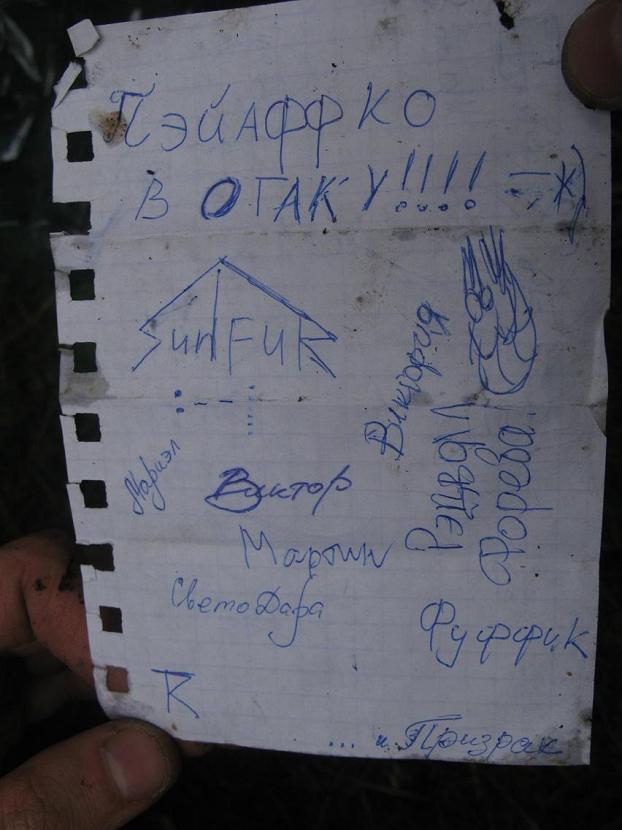 ПЭЙАФФКО
В ОТАКУ!!!! =;ж)
SunFuR
Мариэл
Виктор
Мартин
СветоДара
Виктория
Форева!
Фуффик
R
... и Призрак